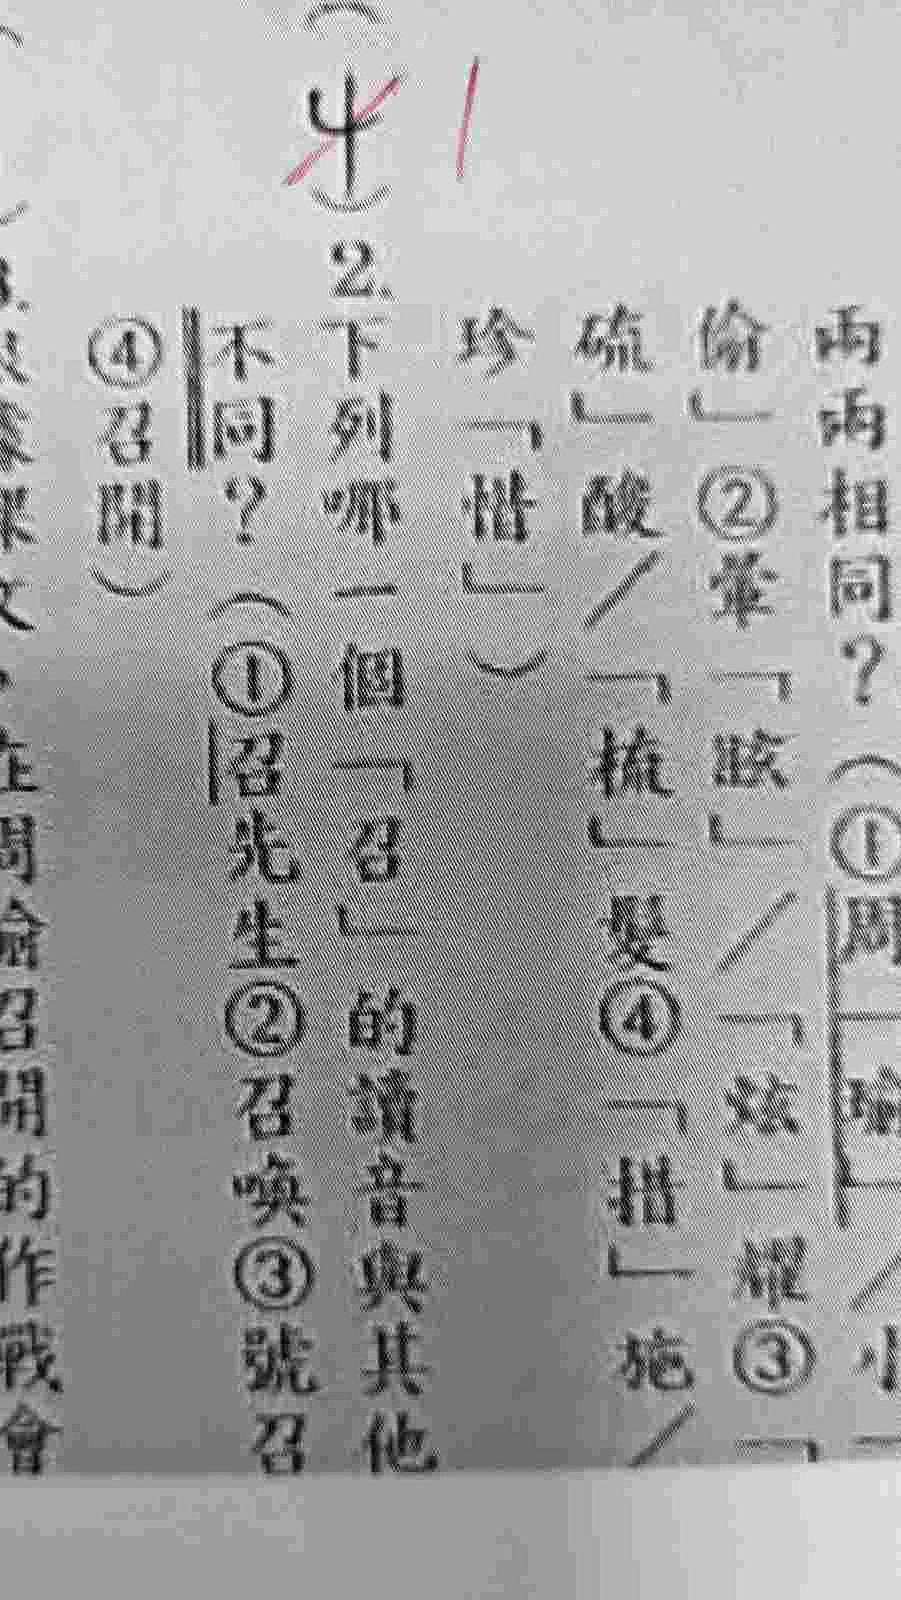 兩兩相同？（①周「瑜」／小「
偷」②暈「眩」／「炫」耀③「
硫」酸／「梳」髮④「措」施／
珍「惜」）
（4）2.下列哪一個「召」的讀音與其他
不同？（①召先生②召喚③號召
④召開）
1
課文，在周瑜召開的作戰會